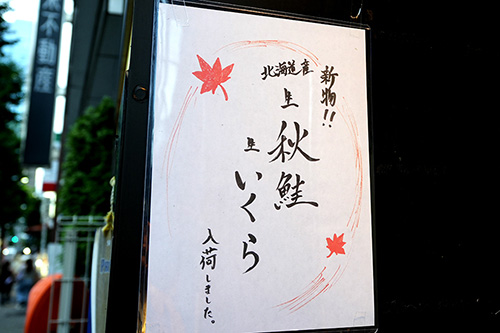 新物!!
北海道産
生秋鮭
生いくら
入荷しました。
不動産